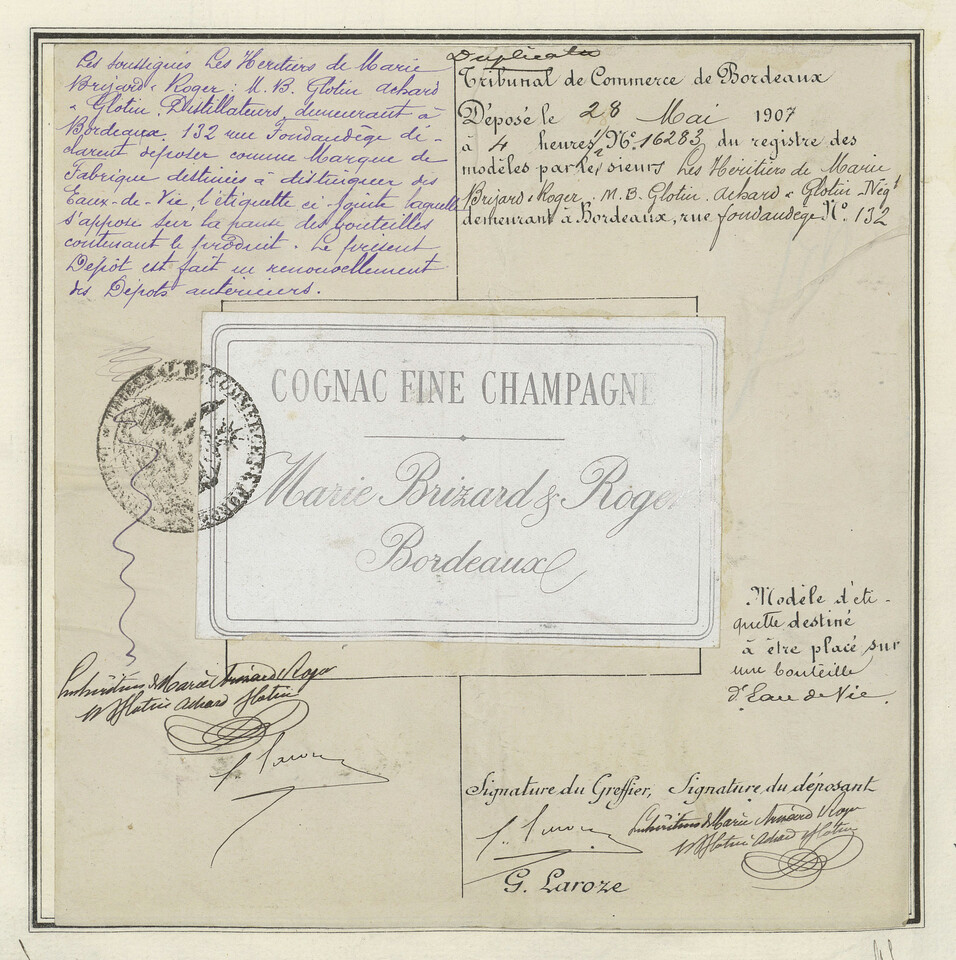 Les soussignés Les Heritiers de Marie
Brizard & Roger: M. B. Glotin Achard
& Glotin, Distillateurs, demeurant à
Bordeaux, 132 rue Fondaudège dé-
clarent déposer comme Marque de
Fabrique destinées à distinguer des
Eaux-de-Vie, l'étiquette ci-jointe laquelle
s'appose sur la panse des bouteilles
contenant le produit. Le présent
Dépôt est fait en renouvellement
des Dépôts antérieurs.
Duplicata
Tribunal de Commerce de Bordeaux
Déposé le 28 Mai 1907
à 4 heures, No. 16283 du registre des
modèles par les sieurs Les Héritiers de Marie
Brizard & Roger, M. B. Glotin, Achard & Glotin Négts
demeurant à Bordeaux, rue fondaudège No. 132
COGNAC FINE CHAMPAGNE
Marie Brizard & Roger
Bordeaux
TRIBUNAL DE COMMERCE
Modèle d'éti-
quette destiné
à être placé sur
une bouteille
d'Eau de Vie.
Les héritiers de Marie Brizard & Roger
M B Glotin Achard & Glotin
Signature du Greffier, Signature du déposant
Les héritiers de Marie Brizard & Roger
M B Glotin Achard & Glotin
G. Laroze